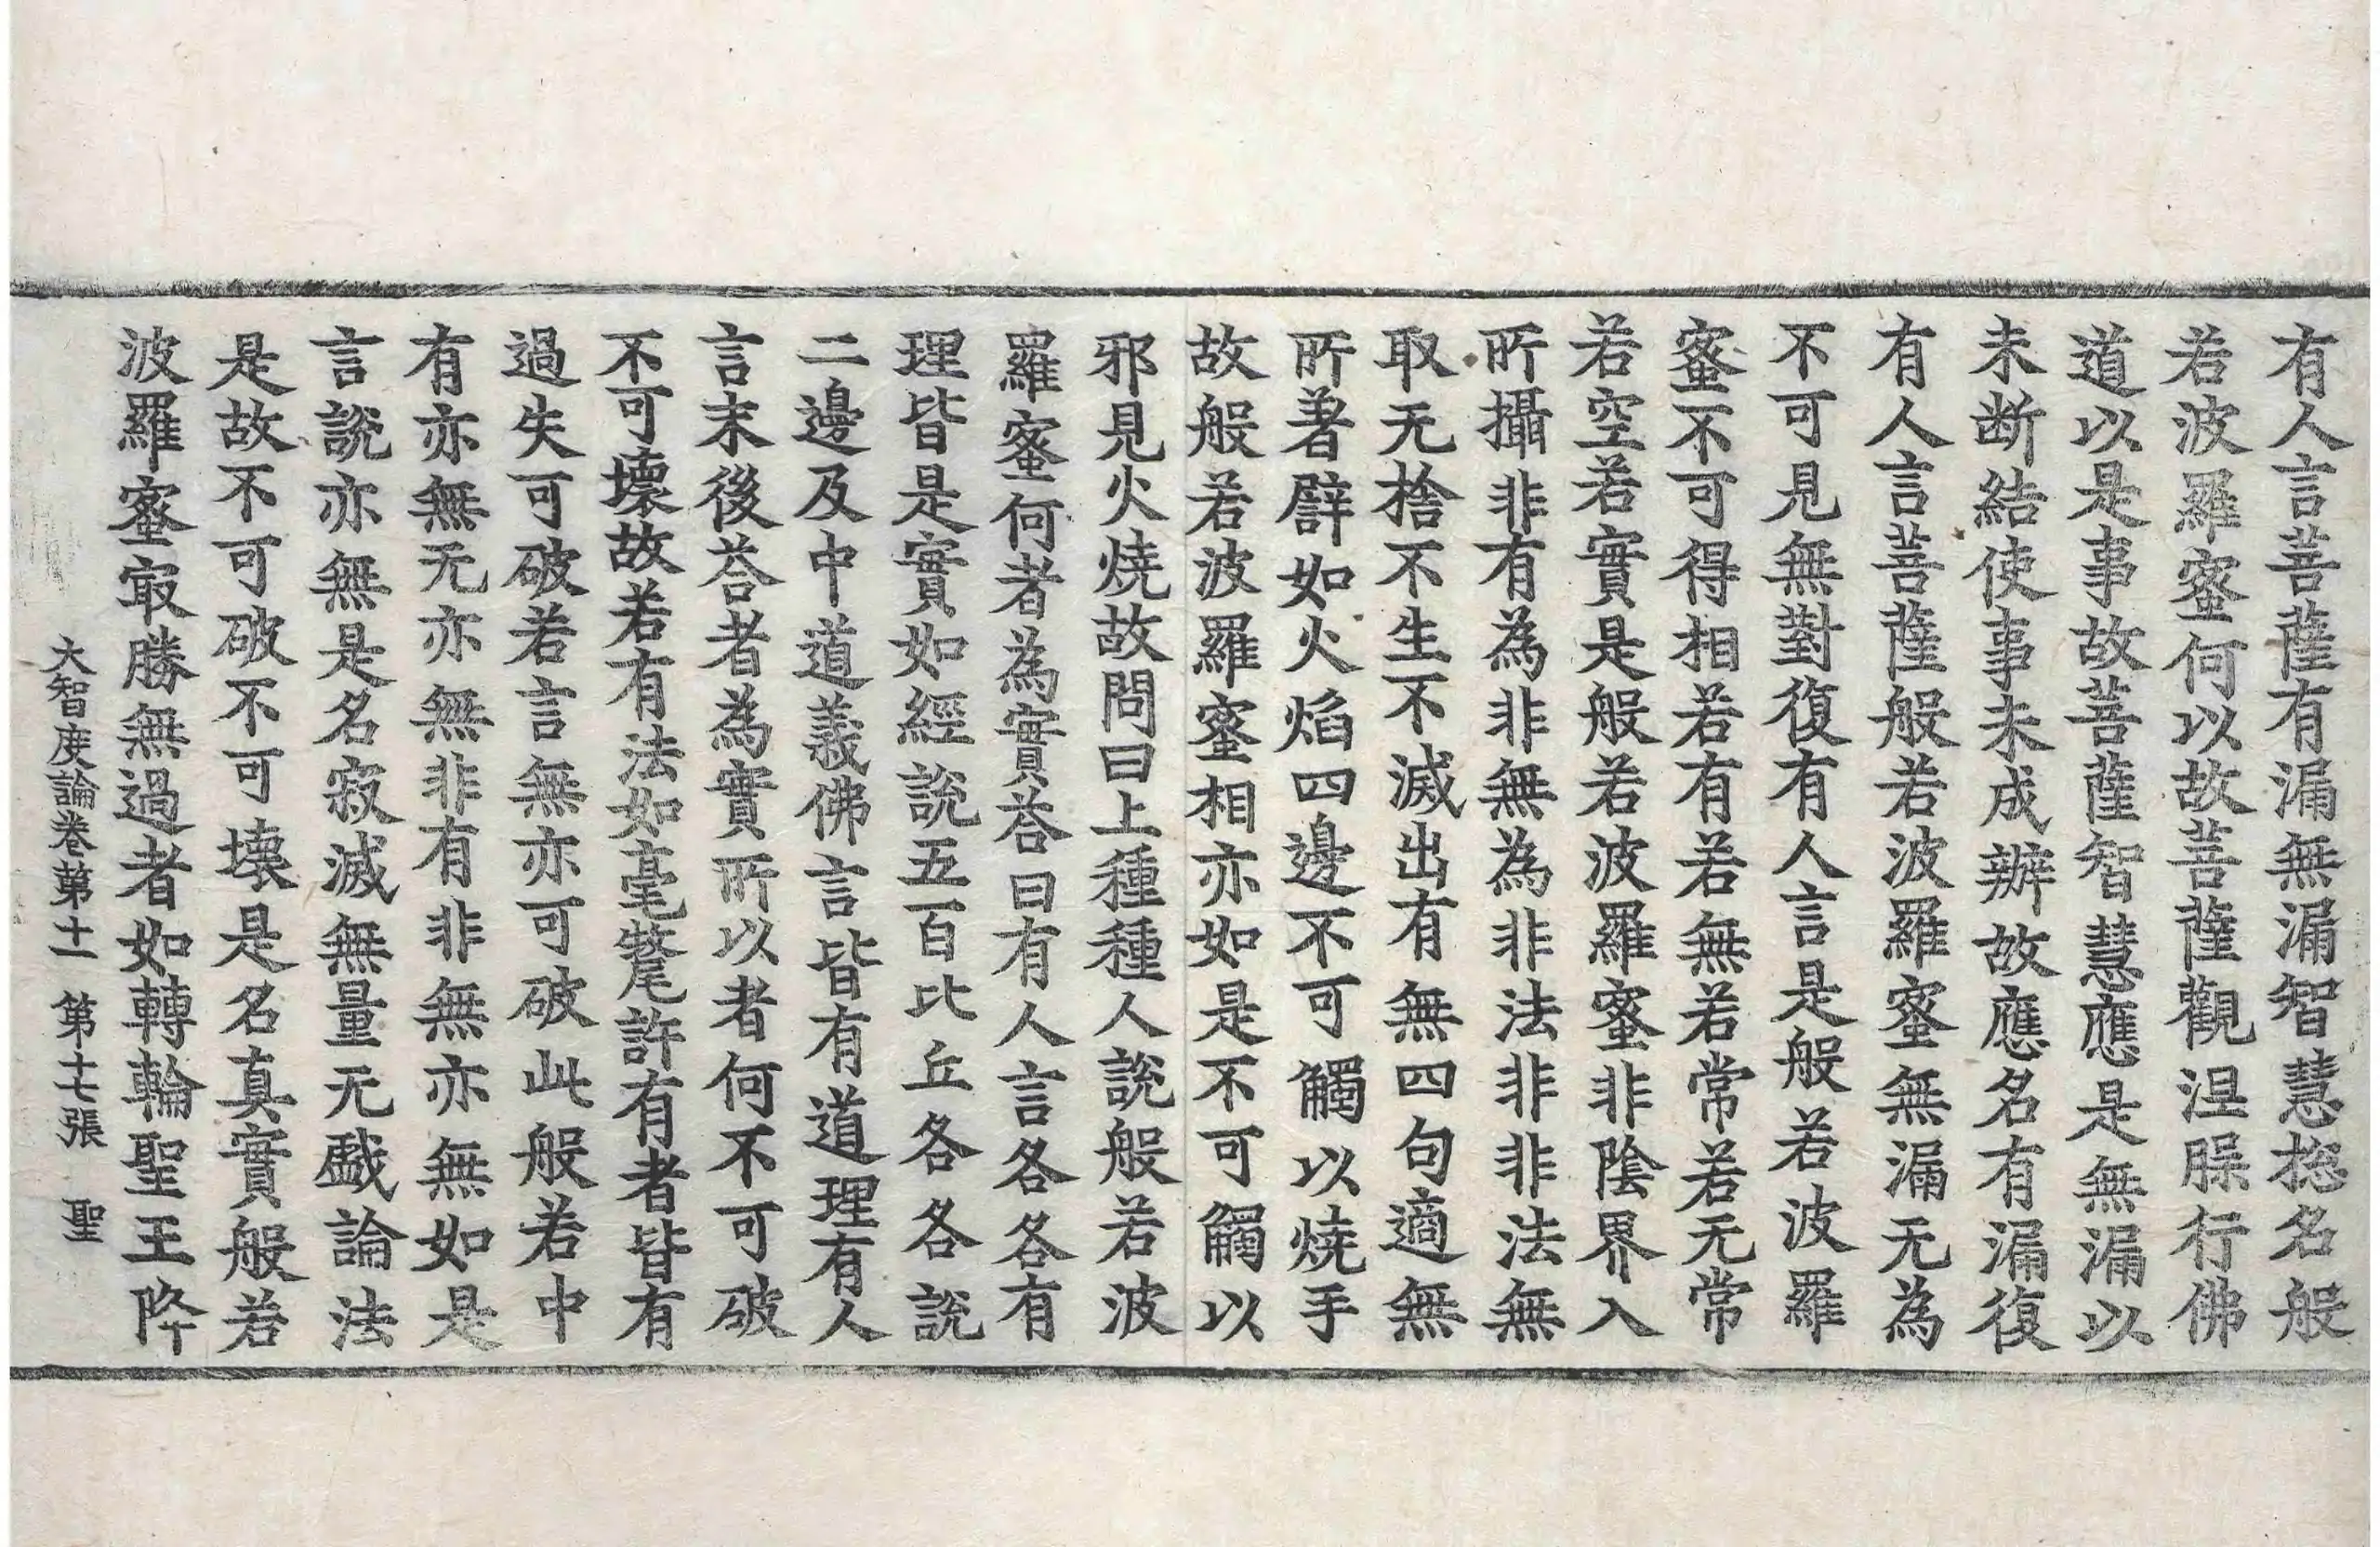 有人言菩薩有漏無漏智慧捴名般
若波羅蜜何以故菩薩觀涅脲行佛
道以是事故菩薩智慧應是無漏以
未断結使事未成辦故應名有漏復
有人言菩薩般若波羅蜜無漏无為
不可見無對復有人言是般若波羅
蜜不可得相若有若無若常若无常
若空若實是般若波羅蜜非陰界入
所攝非有為非無為非法非非法無
取无捨不生不滅出有無四句適無
所著譬如火焰四邊不可觸以燒手
故般若波羅蜜相亦如是不可觸以
邪見火燒故問曰上種種人說般若波
羅蜜何者為實荅曰有人言各各有
理皆是實如經說五百比丘各各說
二邊及中道義佛言皆有道理有人
言末後荅者為實所以者何不可破
不可壞故若有法如毫氂許有者皆有
過失可破若言無亦可破此般若中
有亦無无亦無非有非無亦無如是
言說亦無是名寂滅無量无戲論法
是故不可破不可壞是名真實般若
波羅蜜㝡勝無過者如轉輪聖王降
大智度論卷第十一 第十七張 聖